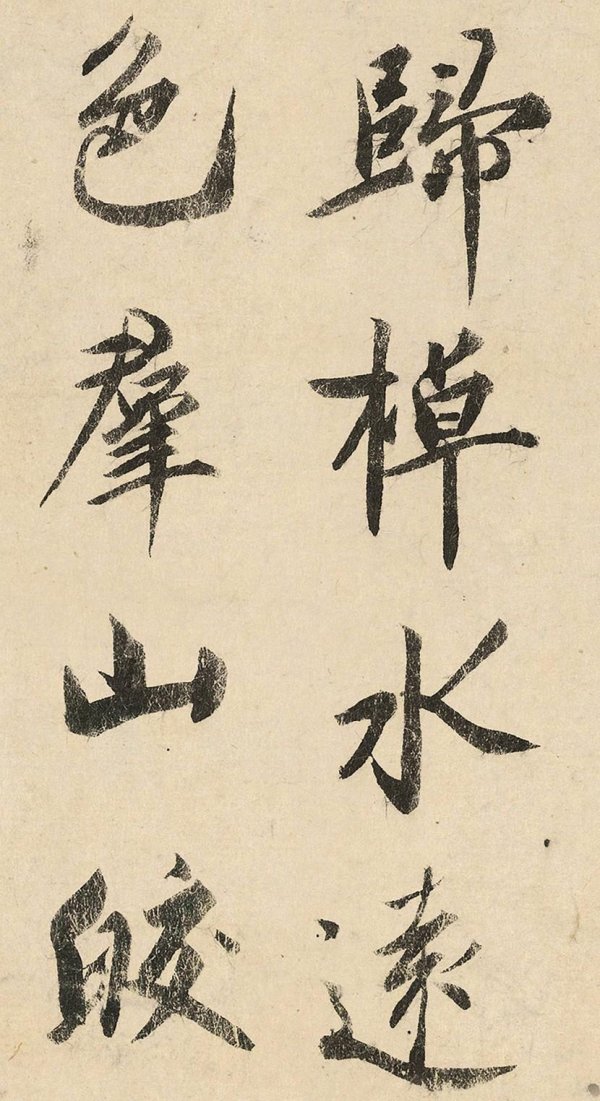 歸棹水遠
色羣山皎